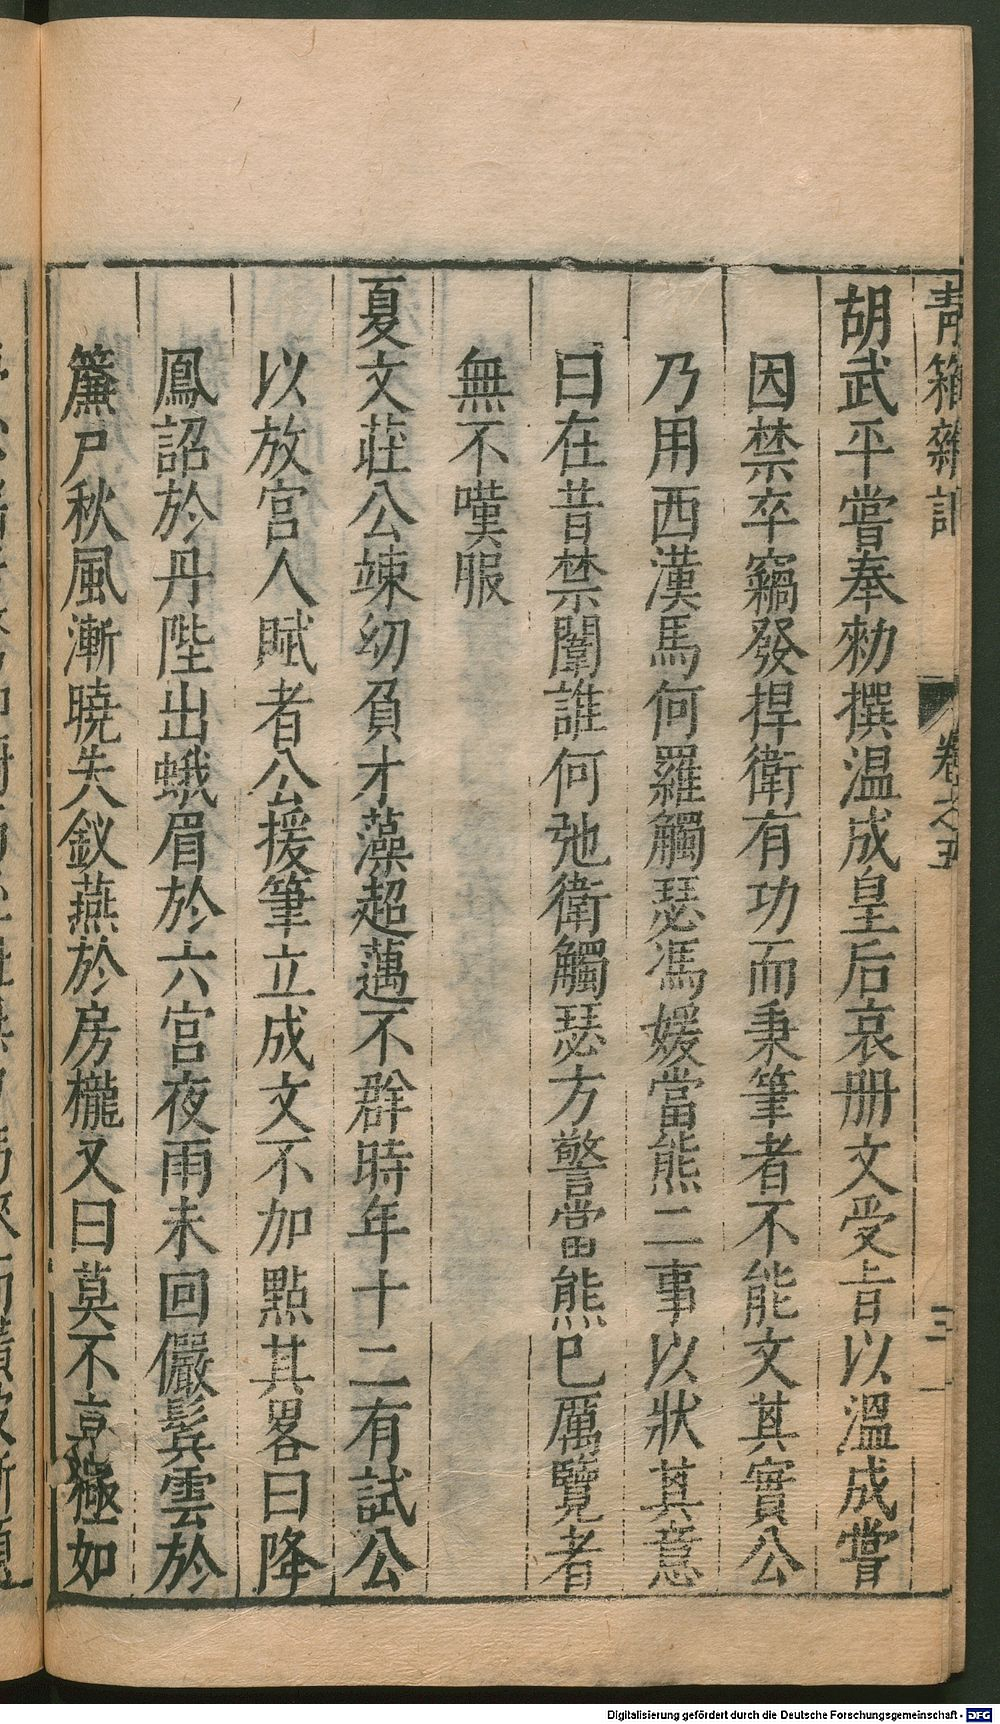 青箱雜記
卷之五
三
胡武平嘗奉勑撰温成皇后哀册文受旨以溫成嘗
因禁卒竊發捍衛有功而秉筆者不能文其實公
乃用西漢馬何羅觸瑟馮媛當熊二事以狀其意
曰在昔禁闈誰何弛衛觸瑟方警當熊已厲覽者
無不嘆服
夏文莊公竦幼負才藻超邁不群時年十二有試公
以放宮人賦者公援筆立成文不加點其畧曰降
鳳詔於丹陛出蛾眉於六宮夜雨未回儼鬂雲於
簾戶秋風漸曉失釵燕於房櫳又曰莫不亰極如
Digitalisierung gefördert durch die Deutsche Forschungsgemeinschaft - DFG